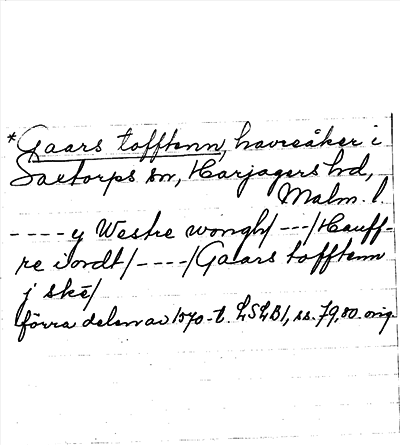 *Gaars tofftenn, havreåker i
Saxtorps sn, Harjagers hd,
Malm. l.
----y Westre wongh/ ---/Hauff-
re iordt/----/Gaars tofftenn
j skē/
förra delen av 1570-t. LSLB1, ss. 79, 80. orig.